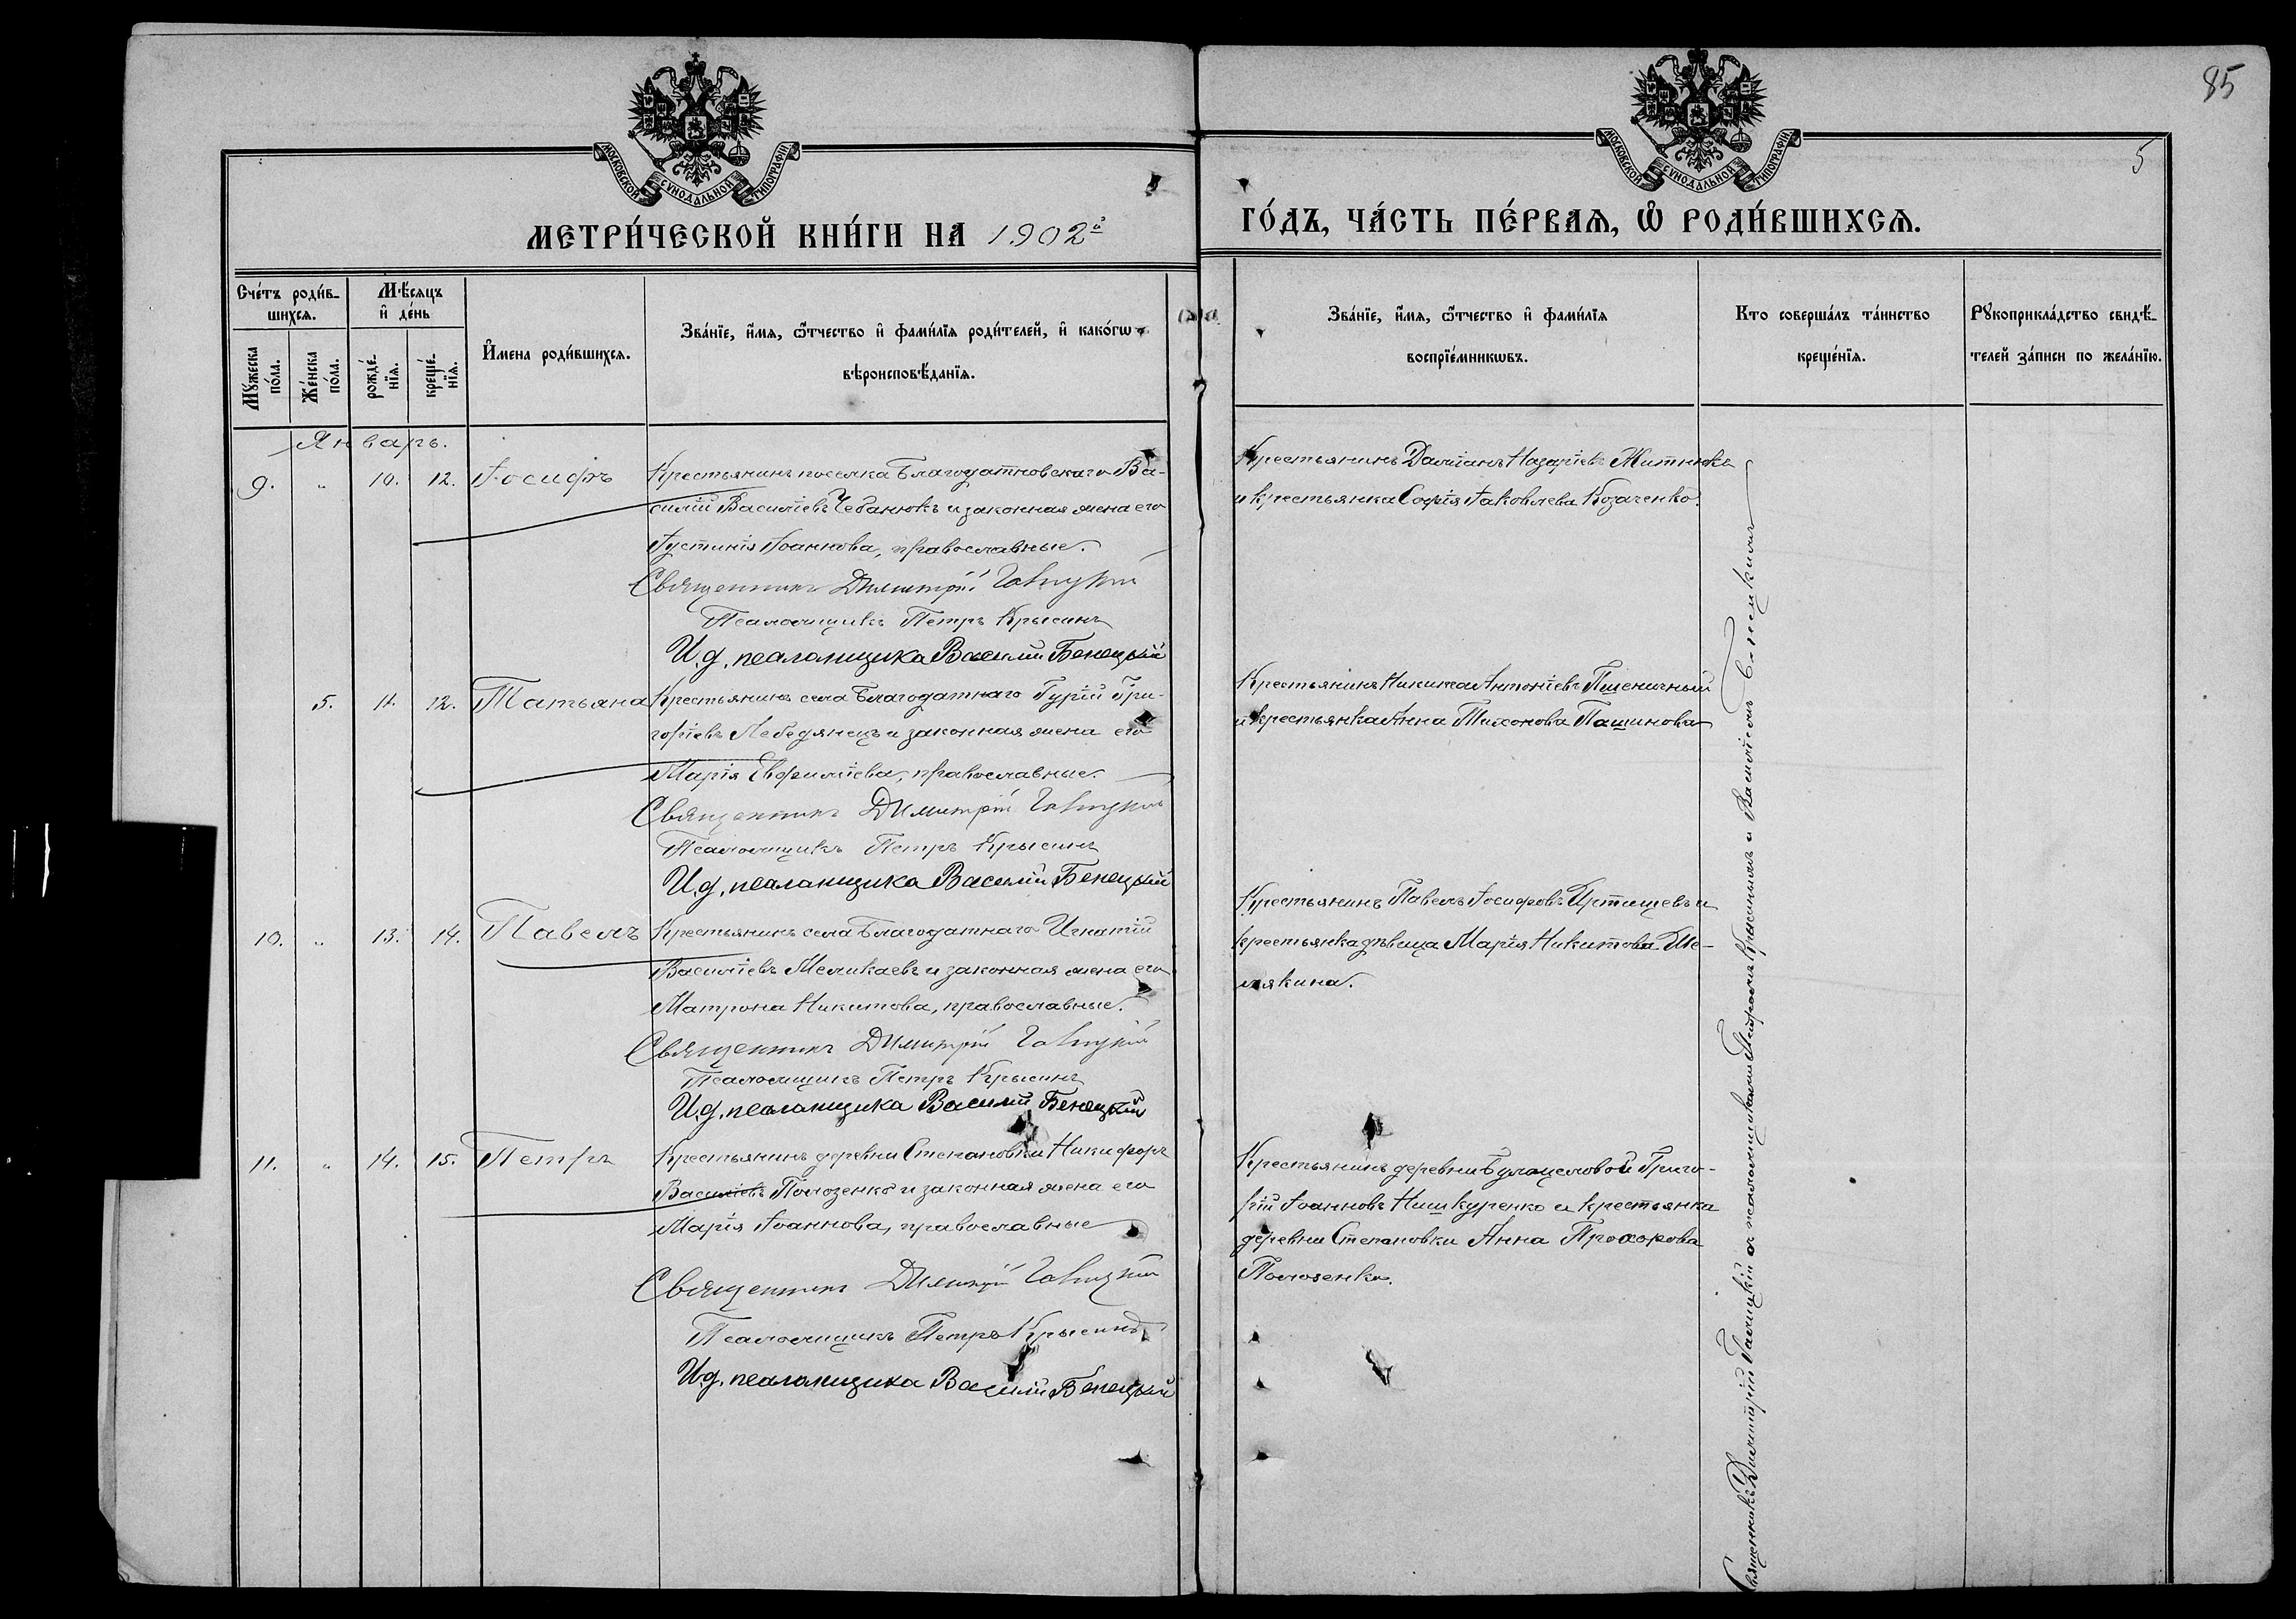 85
5
МОСКОВСКОЙ СѴНОДАЛЬНОЙ ТИПОГРАФІИ
МОСКОВСКОЙ СѴНОДАЛЬНОЙ ТИПОГРАФІИ
МЕТРИ́ЧЕСКОЙ КНИ́ГИ НА 1902й
ГО́ДЪ, ЧА́СТЬ ПЕ́РВАѦ, Ѡ҆ РОДИ́ВШИХСѦ.
Сче́тъ роди́в-
шихсѧ.
Мꙋ́жеска по́ла.
Же́нска по́ла.
Мѣ́сѧцъ
и҆ де́нь
рожде́-нїѧ.
креще́-нїѧ.
И҆мена роди́вшихсѧ.
Зва́нїе, и҆́мѧ, ѻ҆́тчество и҆ фами́лїѧ роди́телей, и҆ како́гѡ
вѣроисповѣ́данїѧ.
Зва́нїе, и҆́мѧ, ѻ҆́тчество и҆ фами́лїѧ
воспрїе́мникѡвъ.
Кто соверша́лъ та́инство
креще́нїѧ.
Рꙋкоприкла́дство свидѣ́-
телей за́писи по жела́нїю.
Январь.
9. „ 10. 12. Іосифъ Крестьянинъ поселка Благодатновскаго Ва-
силій Васильевъ Чебанюкъ и законная жена его
Іустинія Іоаннова, православные.
Священникъ Димитрій Галицкій
Псаломщикъ Петръ Крысинъ
И.д. псаломщика Василій Бенецкій
Крестьянинъ Даміанъ Назаріевъ Житнюкъ
и крестьянка Софія Іаковлева Козаченко.
5. 11. 12. Татьяна Крестьянинъ села Благодатнаго Гурій Гри-
горіевъ Лебедянецъ и законная жена его
Марія Евфиміева, православные.
Священникъ Димитрій Галицкій
Псаломщикъ Петръ Крысинъ
И.д. псаломщика Василій Бенецкій
Крестьянинъ Никита Антоніевъ Пшеничный
и крестьянка Анна Тихонова Пашинова
10. „ 13. 14. Павелъ Крестьянинъ села Благодатнаго Игнатій
Васильевъ Меликаевъ и законная жена его
Матрона Никитова, православные.
Священникъ Димитрій Галицкій
Псаломщикъ Петръ Крысинъ
И.д. псаломщика Василій Бенецкій
Крестьянинъ Павелъ Іосифовъ Иртищевъ и
крестьянка дѣвица Марія Никитова Ше-
лякина.
11. „ 14. 15. Петръ Крестьянинъ деревни Степановки Никифоръ
Васильевъ Полозенко и законная жена его
Марія Іоаннова, православные
Священникъ Димитрій Галицкій
Псаломщикъ Петръ Крысинъ
И.д. псаломщика Василій Бенецкій
Крестьянинъ деревни Григо-
рій Іоанновъ Нишкуренко и крестьянка
деревни Степановки Анна Прохорова
Полозенко.
Священникъ Димитрій Галицкій съ псаломщиками Петромъ Крысинымъ и Василіемъ Бенецкимъ